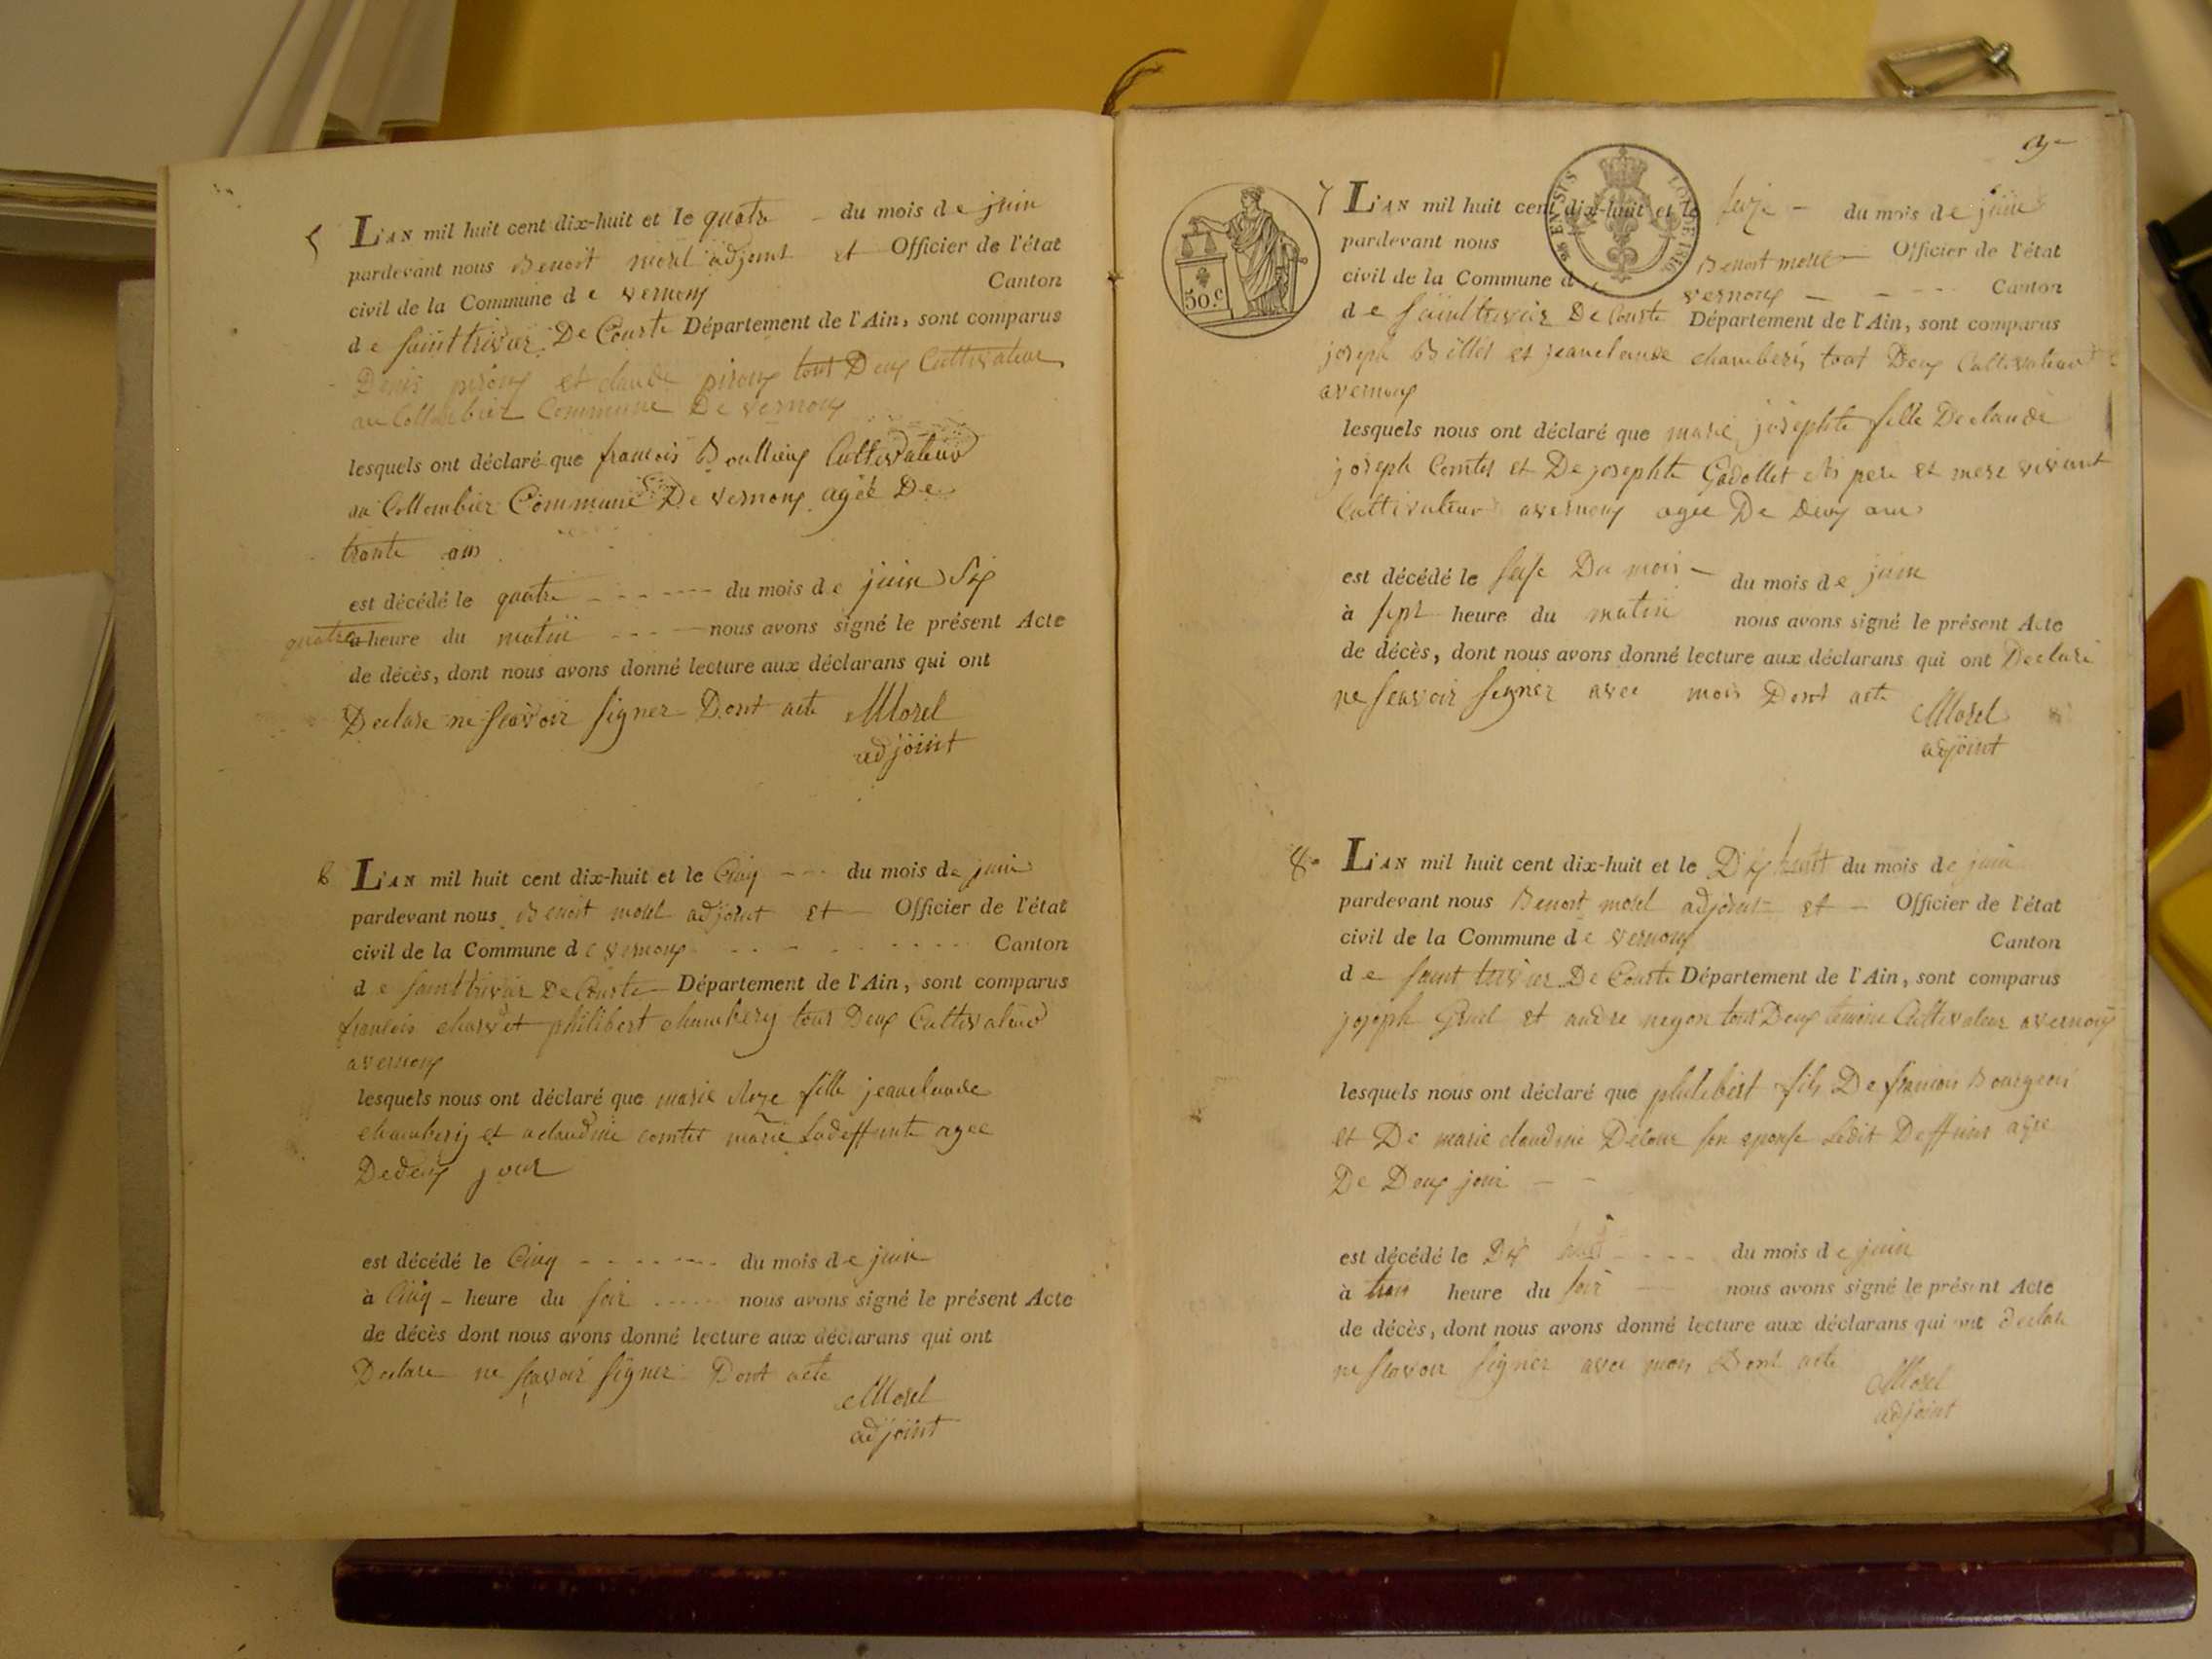 5
L'AN mil huit cent dix-huit et le quatre du mois de juin
pardevant nous Benoit morel adjoint et Officier de l'état
civil de la Commune de vernoux Canton
de saint trivier De Courte Département de l'Ain, sont comparus
Denis piroux et claude piroux tout Deux Cultivateur
au Collombier Commune De vernoux
lesquels ont déclaré que francois Boullieux Cultivateur
au Collombier Commune De vernoux agée De
trante ans
est décédé le quatre du mois de juin Six
quatre a heure du matin nous avons signé le présent Acte
de décès, dont nous avons donné lecture aux déclarans qui ont
Declare ne Scavoir Signer Dont acte Morel
adjoint
6 L'AN mil huit cent dix-huit et le Cinq du mois de juin
pardevant nous Benoit morel adjoint et Officier de l'état
civil de la Commune de vernoux Canton
de saint trivier De Courte Département de l'Ain, sont comparus
francois charvet philibert chambery tous Deux Cultivateur
avernoux
lesquels nous ont déclaré que marie Roze fille jeanclaude
chambery et aclaudine comtet marie Ladeffunte agee
Dedeux jour
est décédé le Cinq du mois de juin
à Cinq heure du soir nous avons signé le présent Acte
de décès dont nous avons donné lecture aux déclarans qui ont
Declare ne scavoir signer Dont acte
Morel
adjoint
50.c
LOI DE 1816
7 L'AN mil huit cent dix-huit et le seize du mois de juin
pardevant nous Benoit morel Officier de l'état
civil de la Commune d vernoux Canton
de saint trivier De Courte Département de l'Ain, sont comparus
joseph Billet et jeanclaude chambery tout Deux Cultivateur
avernoux
lesquels nous ont déclaré que marie josephte fille Declaude
joseph Comtet et De josephte Gadollet ses pere et mere vivant
Cultivateur avernoux agee De deux ans
est décédé le seise Du mois du mois de juin
à sept heure du matin nous avons signé le présent Acte
de décès, dont nous avons donné lecture aux déclarans qui ont Declare
ne scavoir signer avec mois Dont acte Morel
adjoint
8. L'AN mil huit cent dix-huit et le Dix huit du mois de juin
pardevant nous Benoit morel adjoint et Officier de l'état
civil de la Commune de vernoux Canton
de saint trivier De Courte Département de l'Ain, sont comparus
joseph Gruel et andre negon tous Deux temoins Cultivateur avernoux
lesquels nous ont déclaré que philibert fils De francois Bourgeois
et De marie claudine son epouse Ledit Deffunt agee
De Deux jour
est décédé le Dix huit du mois de juin
à trois heure du soir nous avons signé le présent Acte
de décès, dont nous avons donné lecture aux déclarans qui ont declare
ne scavoir signer avec mois Dont acte
Morel
adjoint